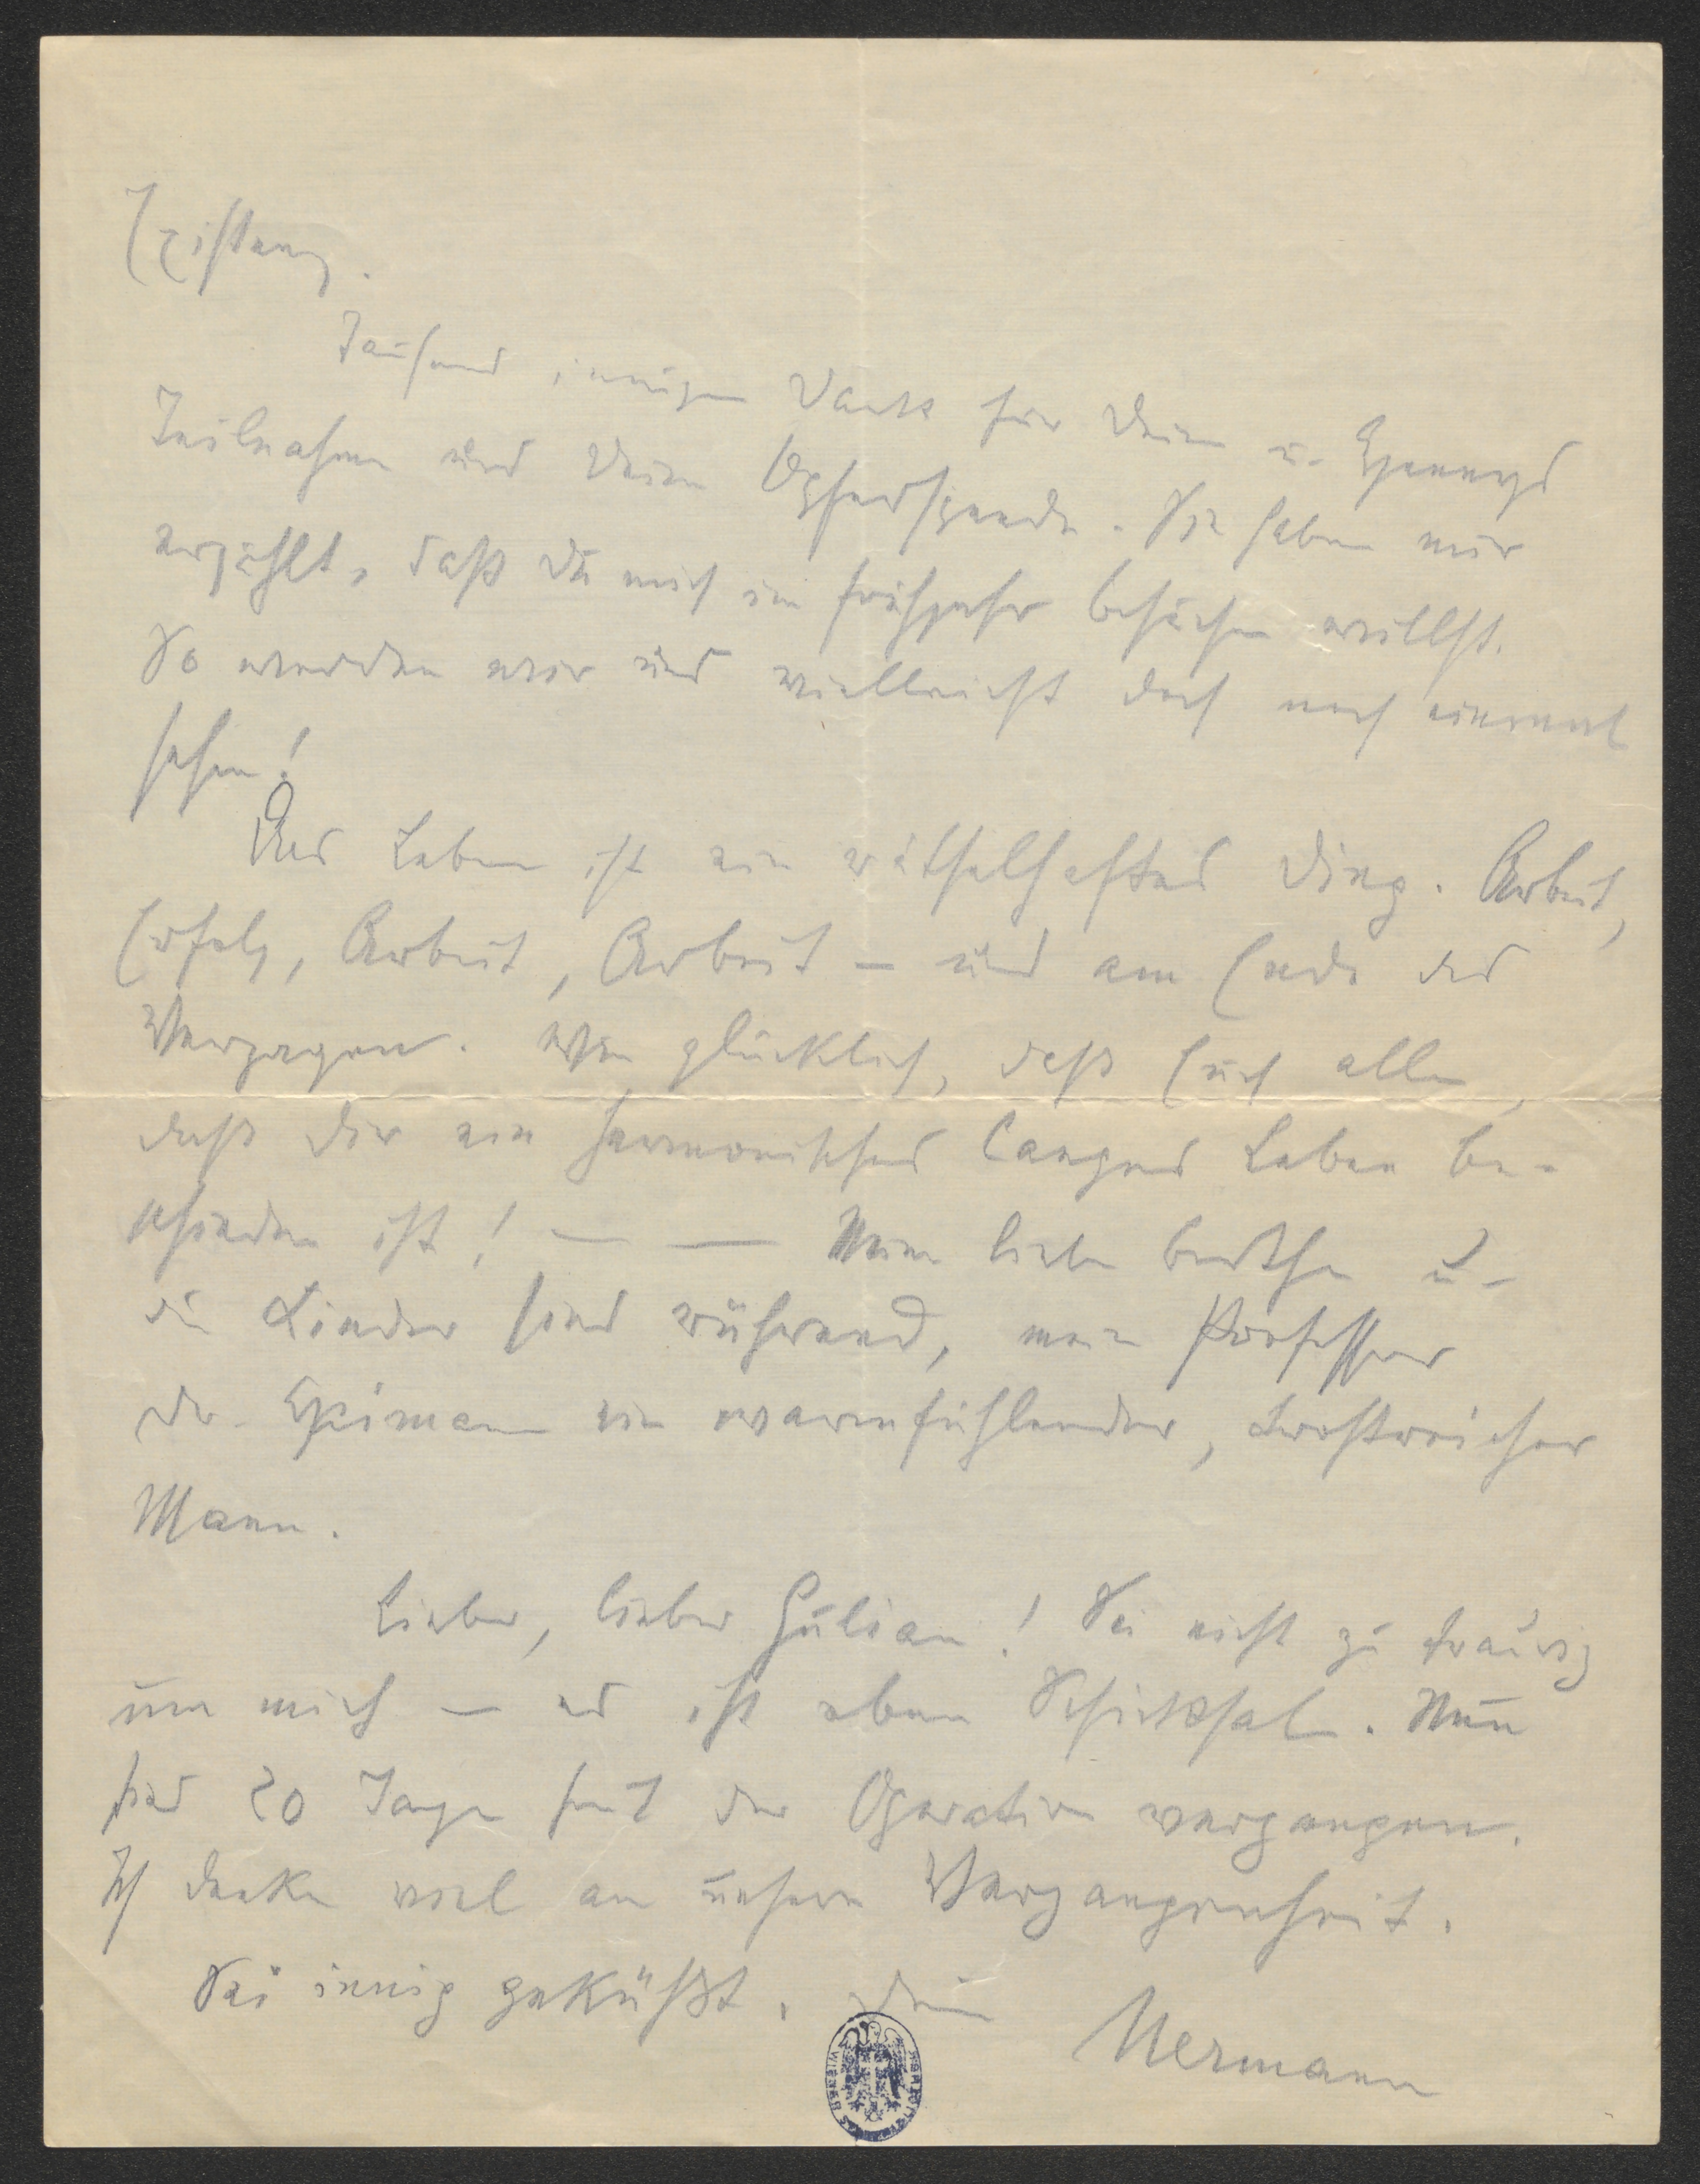 Existenz.
Tausend innigen Dank für Deine u.
Teilnahme und Deine Opferspende. Sie haben mir
erzählt, daß Du mich im Frühjahr besuchen willst.
So werden wir uns vielleicht doch noch einmal
sehen!
Das Leben ist ein räthselhaftes Ding. Arbeit,
Erfolg, Arbeit, Arbeit – und am Ende das
Versagen. Wie glücklich, daß Euch allen,
daß Dir ein harmonisches langes Leben be-
schieden ist! — — Meine liebe Berthe u.
die Kinder sind rührend, mein Professor
Dr. ein warmfühlender, trostreicher
Mann.
Lieber, lieber Julian! Sei nicht zu traurig
um mich – es ist eben Schicksal. Nun
sind 20 Tage seit der Operation vergangen.
Ich denke viel an unsere Vergangenheit.
Sei innig geküßt. Dein
Hermann